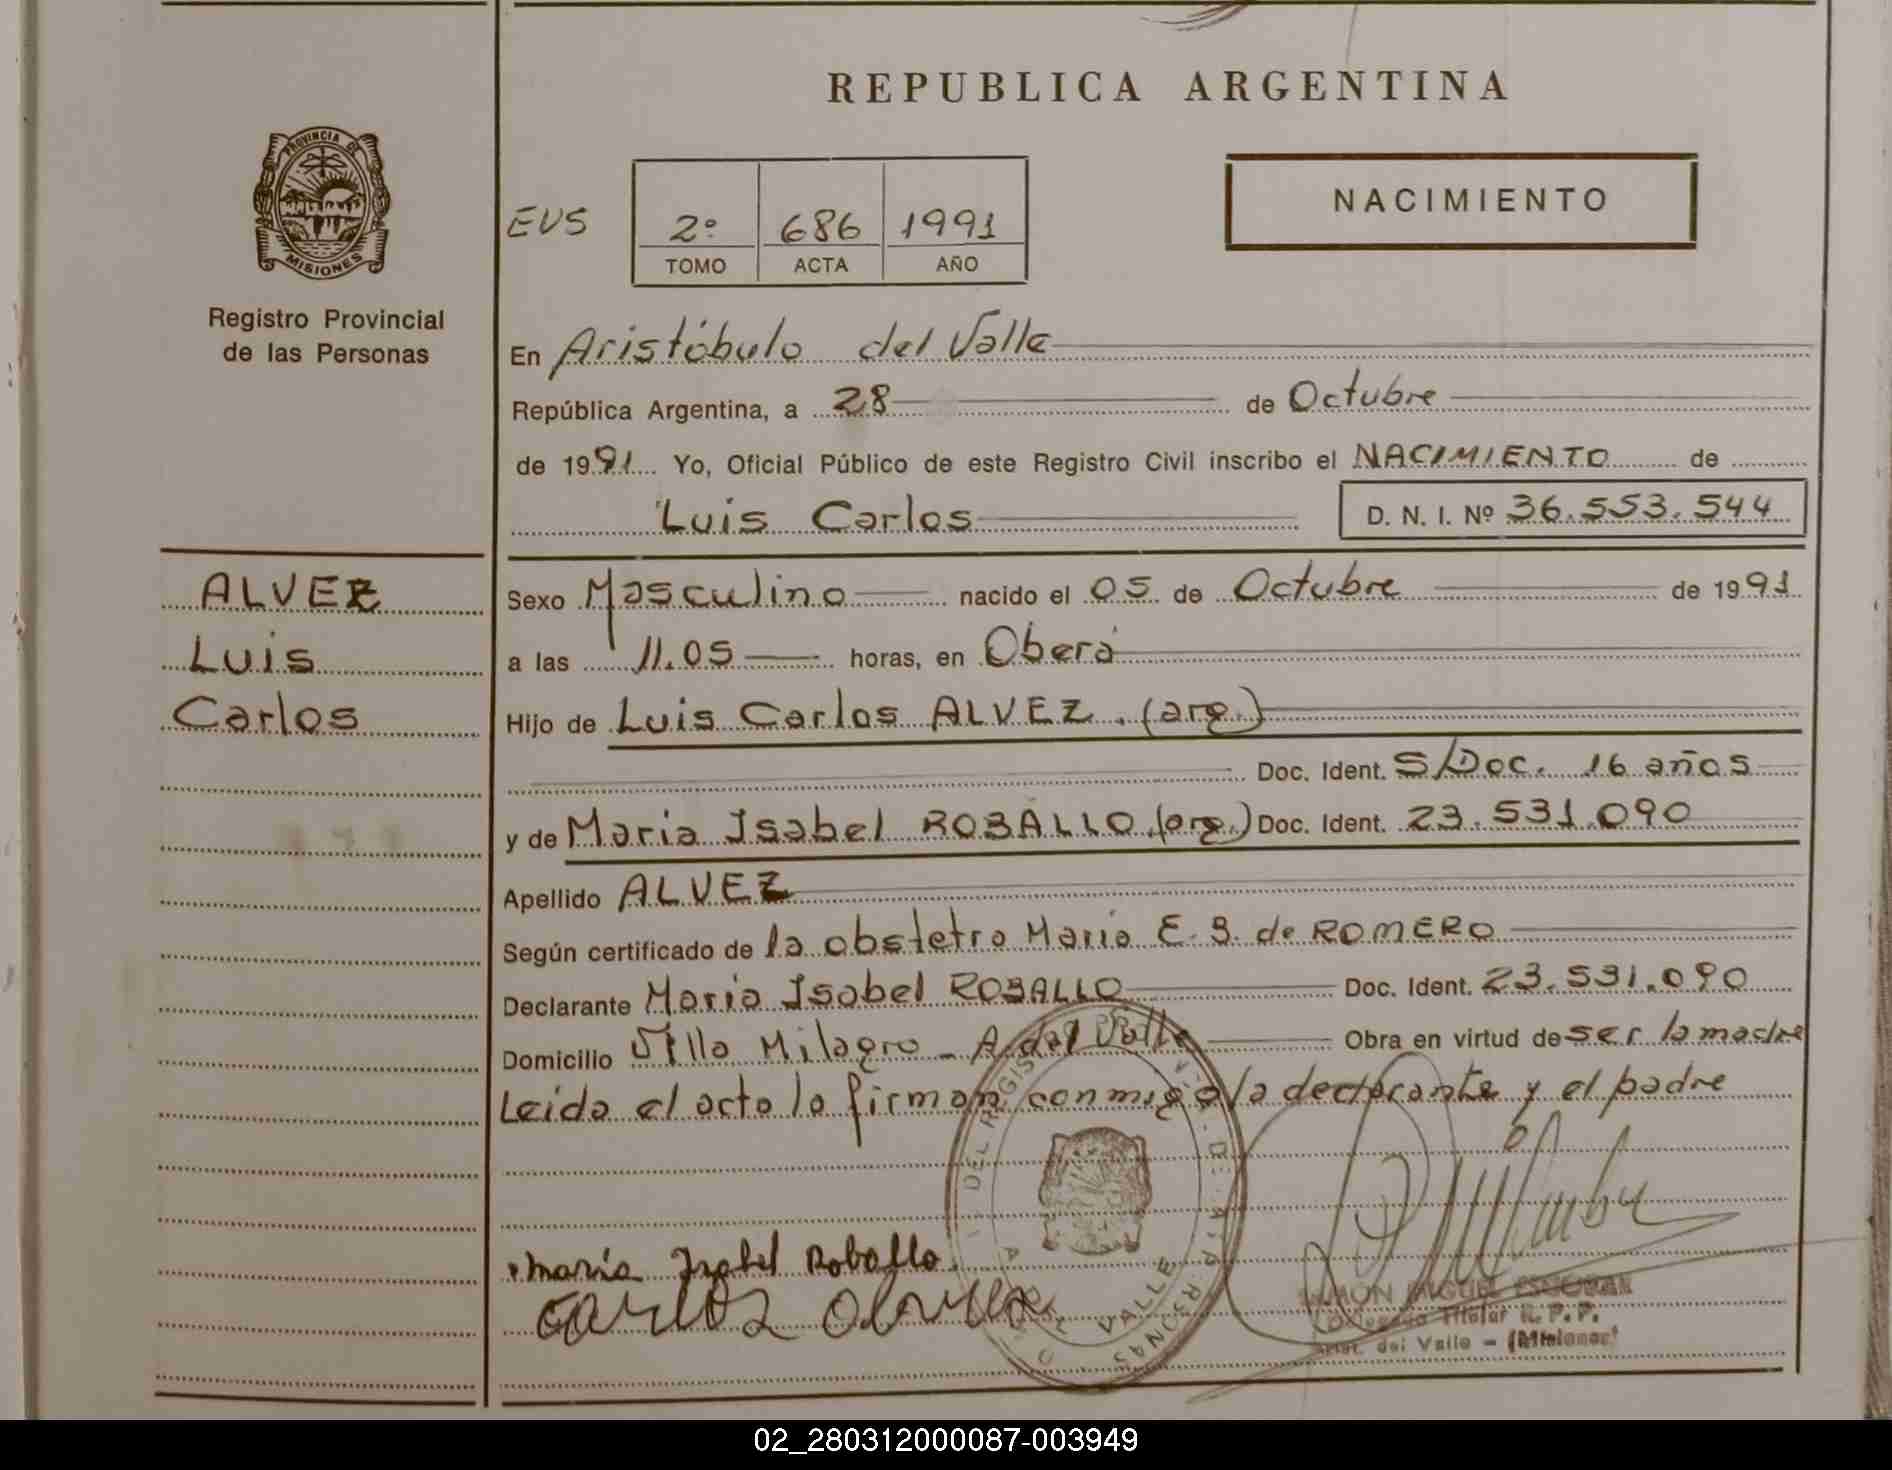 REPUBLICA ARGENTINA
PROVINCIA DE
MISIONES
Registro Provincial
de las Personas
EVS
2º 686 1991
TOMO ACTA AÑO
NACIMIENTO
En Aristóbulo del Valle
República Argentina, a 28 de Octubre
de 1991 Yo, Oficial Público de este Registro Civil inscribo el NACIMIENTO de
Luis Carlos D. N. I. Nº 36.553.544
ALVEZ
Luis
Carlos
Sexo Masculino nacido el 05 de Octubre de 1991
a las 11.05 horas, en Oberá
Hijo de Luis Carlos ALVEZ. (arg.)
Doc. Ident. S/Doc. 16 años
y de Maria Isabel ROBALLO (arg.) Doc. Ident. 23.531.090
Apellido ALVEZ
Según certificado de la obstetra Maria E. B. de ROMERO
Declarante Maria Isabel ROBALLO Doc. Ident. 23.531.090
Domicilio Villa Milagro - A. del Valle Obra en virtud de ser la madre
Leida el acta la firman conmigo la declarante y el padre
maria Isabel Roballo
RAMON MIGUEL ESCOBAR
Delegado Titular R. P. P.
Arist. del Valle - (Misiones)
02_280312000087-003949